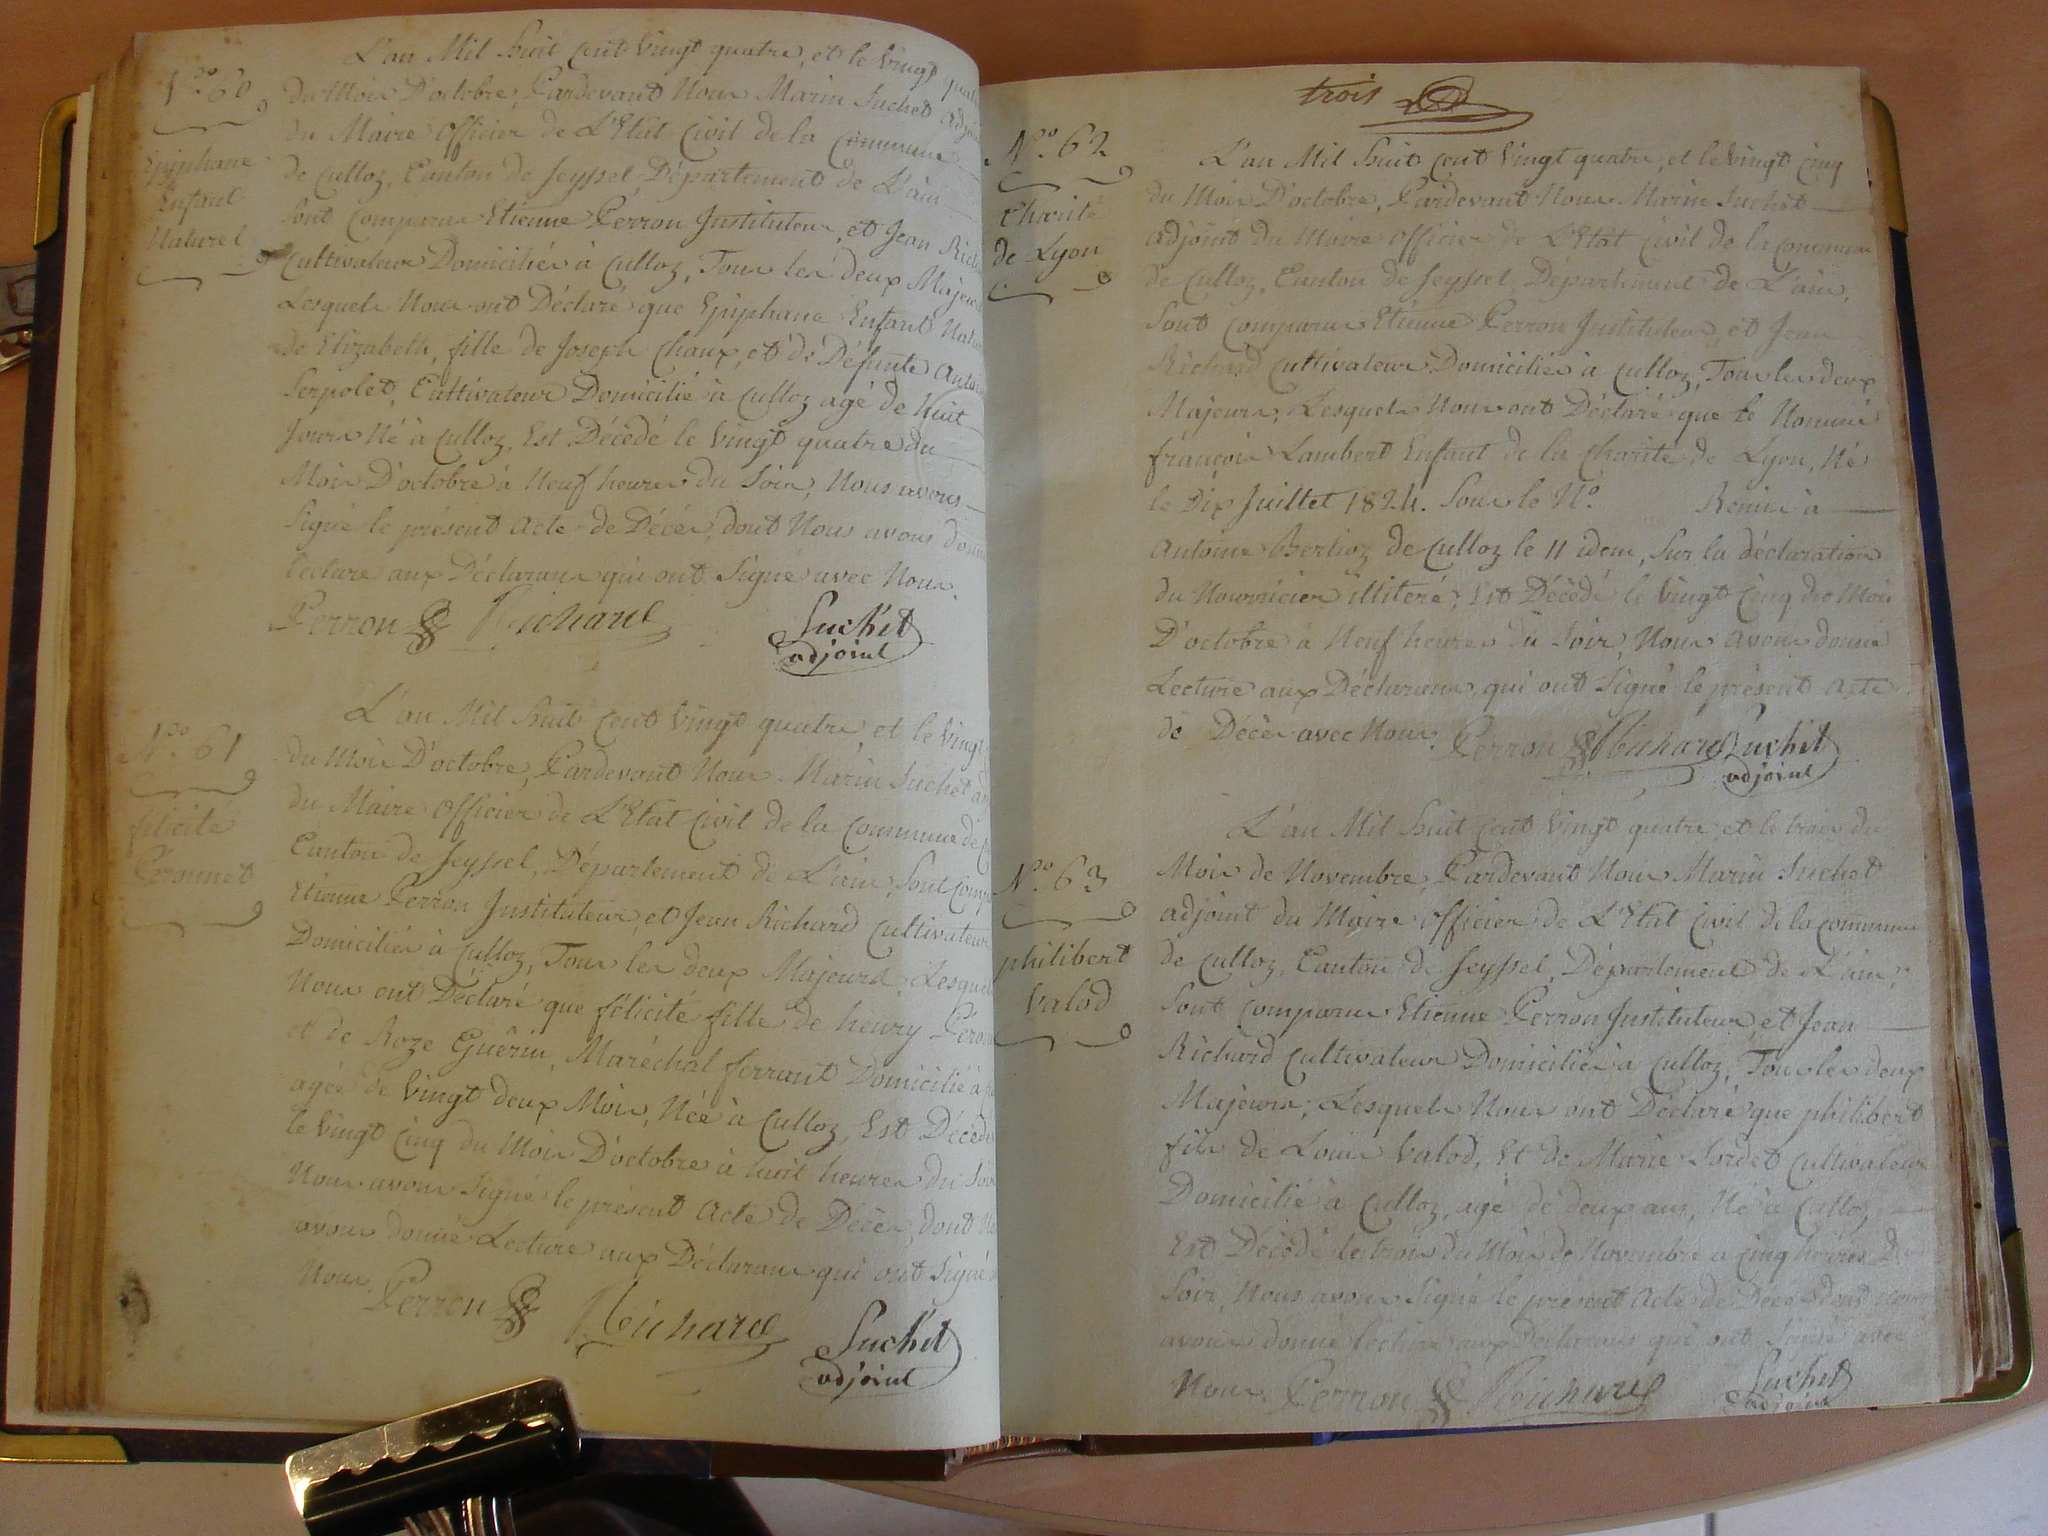 L'an Mil huit cent vingt quatre, et le vingt quatre
N.° 60
du Mois D'octobre, Pardevant Nous Marin Suchet adjoint
du Maire officier de L'Etat Civil de la Commune
Epiphane
Enfant
Naturel
de Culloz, Canton de Seyssel, Département de L'ain
sont comparus Etienne Perron Instituteur, et Jean Rich
Cultivateur Domiciliés à Culloz, Tous les deux Majeurs
Lesquels Nous ont Déclaré que Epiphane Enfant Natu
de Elizabeth, fille de Joseph Chaux, et de Défunte Antoi
Serpolet, Cultivateur Domicilié à Culloz agé de huit
Jours Né à Culloz, Est Décédé le vingt quatre du
Mois D'octobre à Neuf heures du Soir, Nous avons
Signé le présent acte de Décès, dont Nous avons donné
lecture aux Déclarans qui ont Signé avec Nous.
Perron Richard Suchet
adjoint
L'an Mil huit cent vingt quatre, et le vingt
N.° 61
du Mois D'octobre, Pardevant Nous Marin Suchet ad
du Maire officier de L'Etat Civil de la Commune de C
félicité
Péronnet
Canton de Seyssel, Département de L'ain, Sont comp
Etienne Perron Instituteur, et Jean Richard Cultivateur
Domiciliés à Culloz, Tous les deux Majeurs, Lesquel
Nous ont Déclaré que félicité fille de henry Péron
et de Roze Guérin, Maréchal ferrant Domicilié à
agée de vingt deux Mois, Née à Culloz, Est Décédé
le vingt cinq du Mois D'octobre à huit heures du Soir
Nous avons Signé le présent acte de Décès, dont N
avons donné Lecture aux Déclarans qui ont Signé
Nous. Perron Richard Suchet
adjoint
trois
N.° 62
Charité
de Lyon
L'an Mil huit cent vingt quatre, et le vingt cinq
du Mois D'octobre, Pardevant Nous Marin Suchet
adjoint du Maire officier de L'Etat Civil de la Commune
de Culloz, Canton de Seyssel, Département de L'ain,
Sont comparus Etienne Perron Instituteur, et Jean
Richard Cultivateur Domiciliés à Culloz, Tous les deux
Majeurs, Lesquels Nous ont Déclaré que le Nommé
françois Lambert Enfant de la Charité de Lyon, Né
le Dix Juillet 1824. Sous le N.° Remis à
Antoine Berlioz de Culloz le 11 idem, Sur la déclaration
du Nourricier illiteré, Est Décédé le vingt cinq du Mois
D'octobre à Neuf heures du Soir, Nous avons donné
Lecture aux Déclarans, qui ont Signé le présent acte
de Décès avec Nous. Perron Richard Suchet
adjoint
N.° 63
philibert
Valod
L'an Mil huit cent vingt quatre et le trois du
Mois de Novembre, Pardevant Nous Marin Suchet
adjoint du Maire officier de L'Etat Civil de la Commune
de Culloz, Canton de Seyssel, Département de L'ain,
Sont comparus Etienne Perron Instituteur, et Jean
Richard Cultivateur Domiciliés à Culloz, Tous les deux
Majeurs, Lesquels Nous ont Déclaré que philibert
fils de Louis Valod, et de Marie Sordet Cultivateur
Domicilié à Culloz, agé de deux ans, Né à Culloz
Est Décédé le trois du Mois de Novembre à cinq heures Du
Soir, Nous avons Signé le présent acte de Décès dont Nous
avons donné lecture aux Déclarans qui ont Signé avec
Nous. Perron Richard Suchet
adjoint